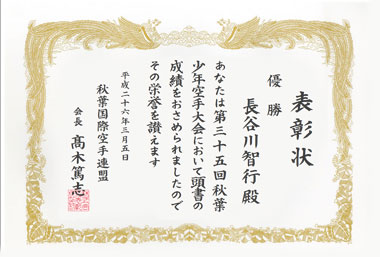 表彰状
優勝
長谷川智行殿
あなたは第三十五回秋葉
少年空手大会において頭書の
成績をおさめられましたので
その栄誉を讃えます
平成二十六年三月五日
秋葉国際空手連盟
会長 髙木篤志